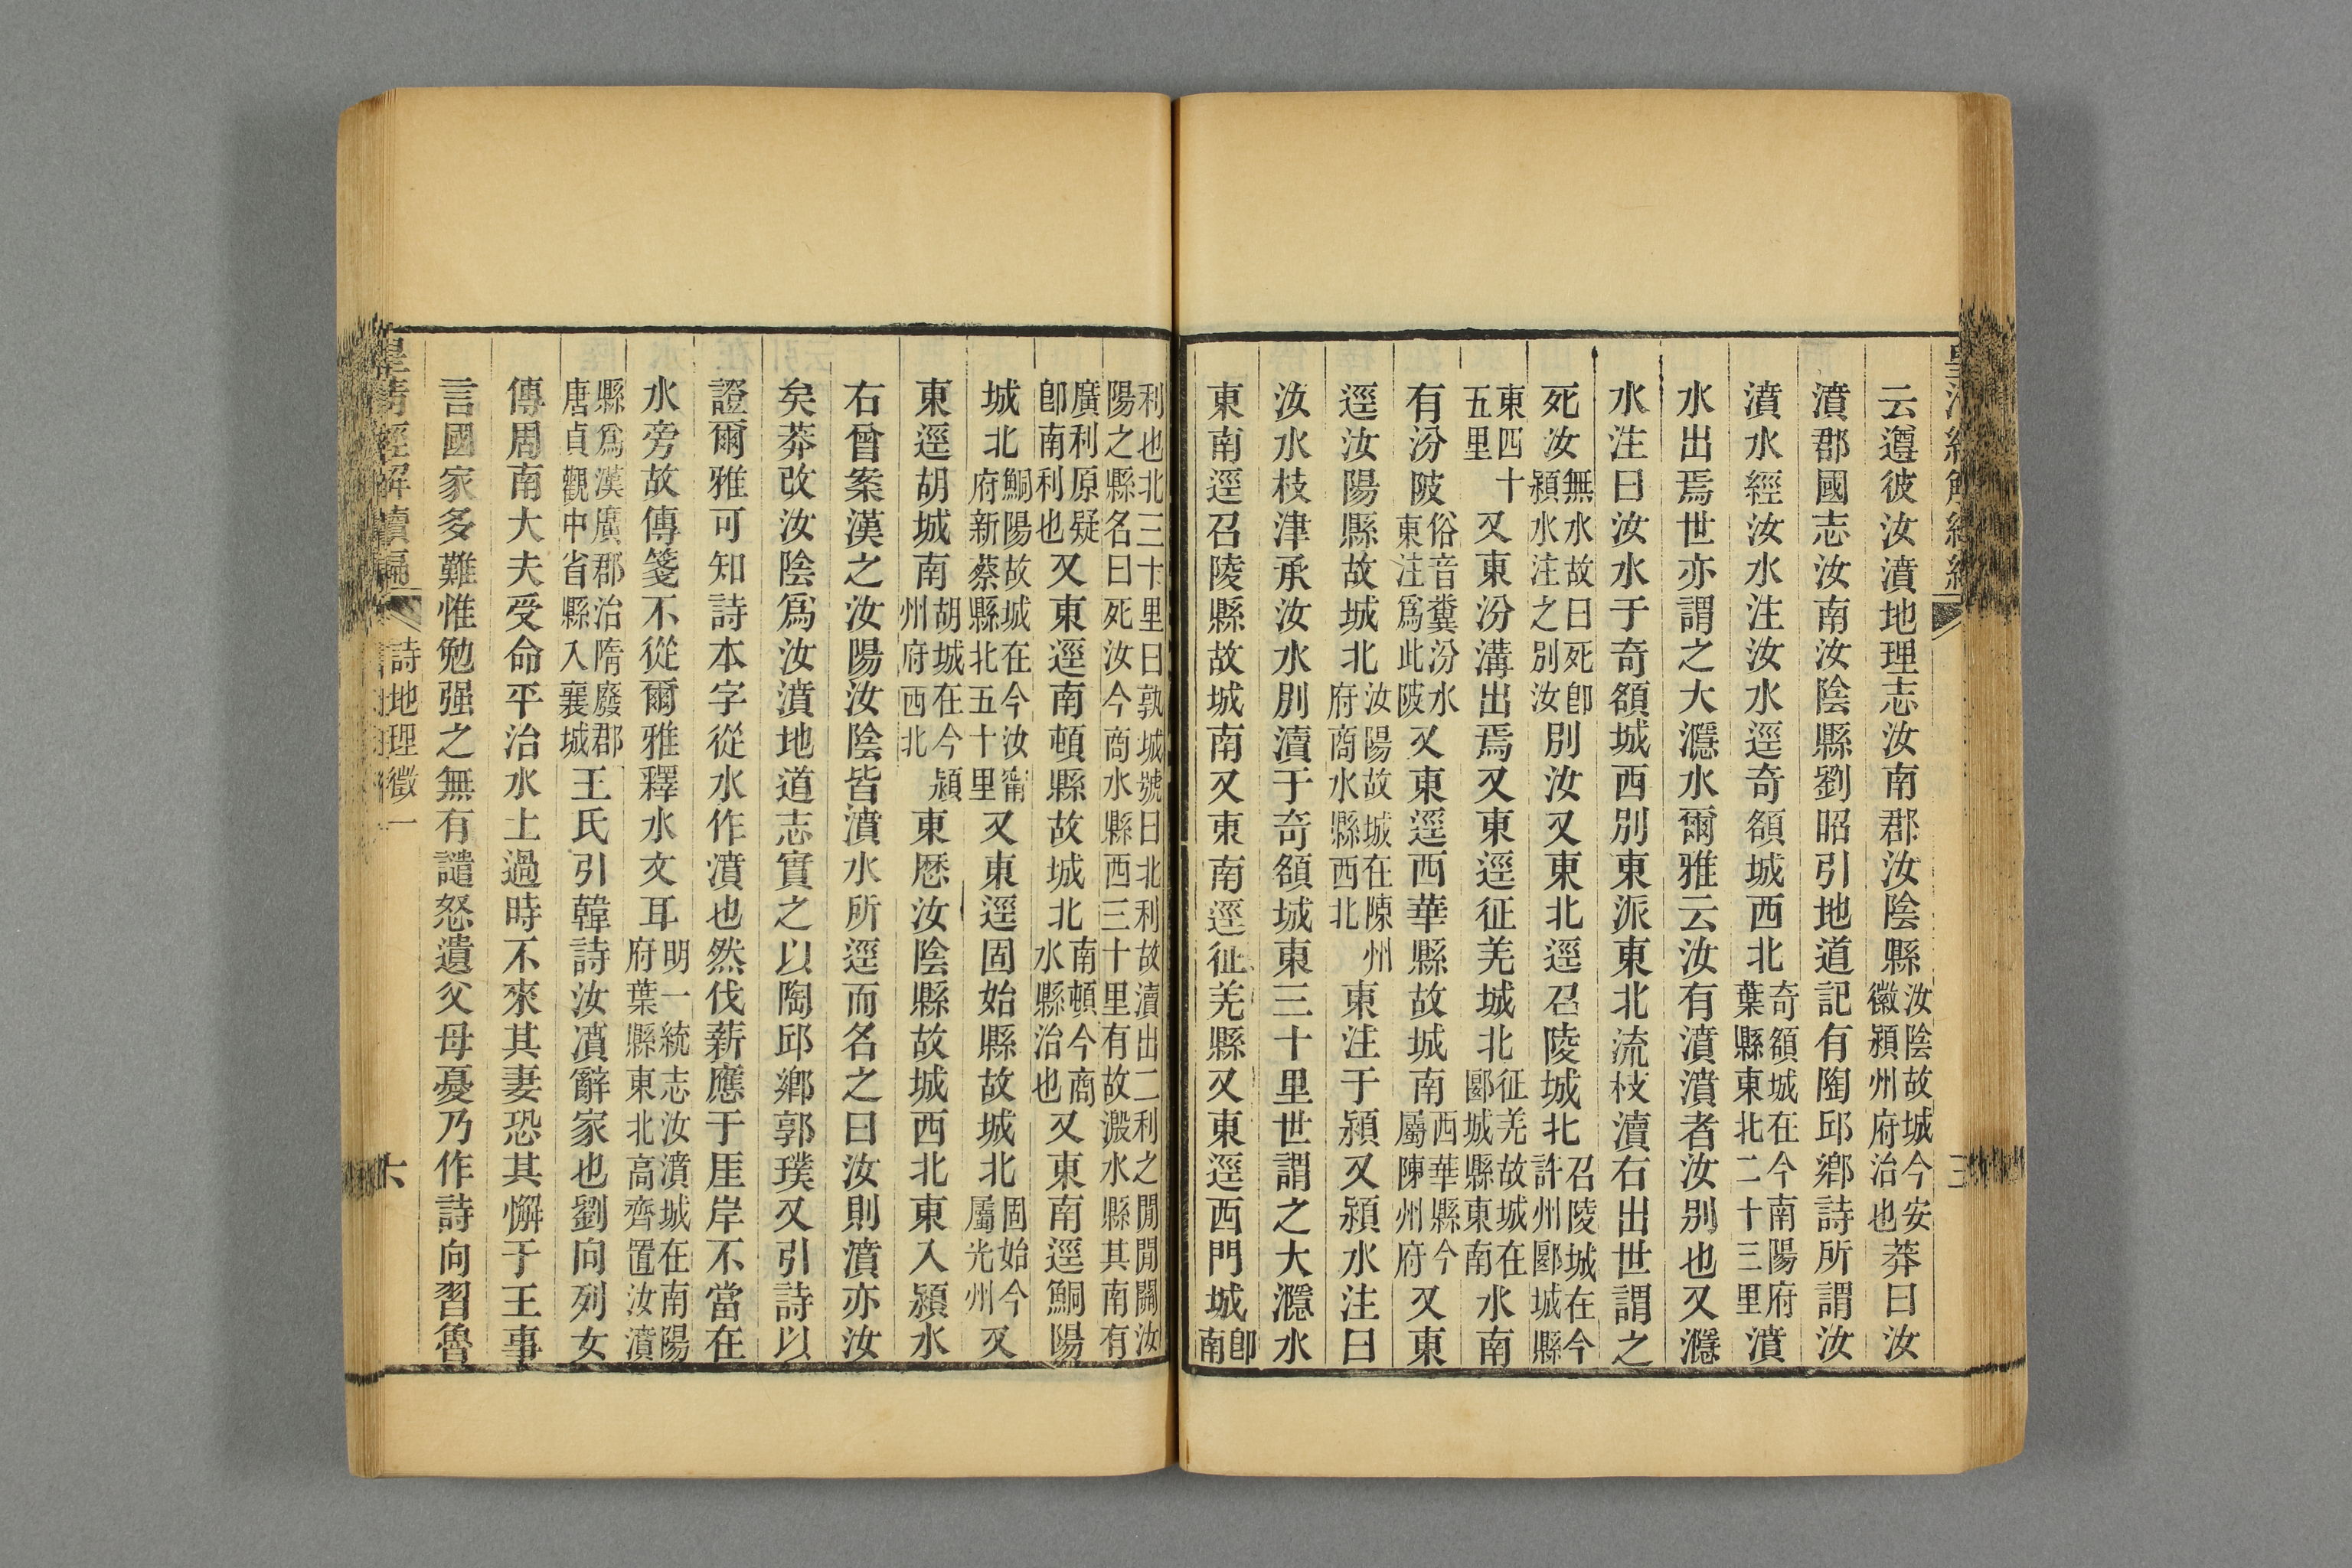 云遵彼汝濆地理志汝南郡汝陰縣汝陰故城今安徽潁州府治也莽曰汝
濆郡國志汝南汝陰縣劉昭引地道記有陶邱鄉詩所謂汝
濆水經汝水注汝水逕奇頟城西北奇頟城在今南陽府葉縣東北二十三里濆
水出焉世亦謂之大㶏水爾雅云汝有濆濆者汝別也又㶏
水注曰汝水于奇頟城西別東派東北流枝瀆右出世謂之
死汝無水故曰死卽潁水注之別汝別汝又東北逕召陵城北召陵城在今許州郾城縣
東四十五里又東汾溝出焉又東逕征羌城北征羌故城在郾城縣東南水南
有汾陂俗音糞汾水東注爲此陂又東逕西華縣故城南西華縣今屬陳州府又東
逕汝陽縣故城北汝陽故城在陳州府商水縣西北東注于潁又潁水注曰
汝水枝津承汝水別瀆于奇頟城東三十里世謂之大㶏水
東南逕召陵縣故城南又東南逕征羌縣又東逕西門城卽南
利也北三十里曰孰城號曰北利故瀆出二利之閒閒關汝陽之縣名曰死汝今商水縣西三十里有故溵水縣其南有
廣利原疑卽南利也又東逕南頓縣故城北南頓今商水縣治也又東南逕鮦陽
城北鮦陽故城在今汝甯府新蔡縣北五十里又東逕固始縣故城北固始今屬光州又
東逕胡城南胡城在今潁州府西北東歷汝陰縣故城西北東入潁水
右曾案漢之汝陽汝陰皆濆水所逕而名之曰汝則濆亦汝
矣莽改汝陰爲汝濆地道志實之以陶邱鄉郭璞又引詩以
證爾雅可知詩本字從水作濆也然伐薪應于厓岸不當在
水旁故傳箋不從爾雅釋水文耳明一統志汝濆城在南陽府葉縣東北高齊置汝濆
縣爲漢廣郡治隋廢郡唐貞觀中省縣入襄城王氏引韓詩汝濆辭家也劉向列女
傳周南大夫受命平治水土過時不來其妻恐其懈于王事
言國家多難惟勉强之無有譴怒遺父母憂乃作詩向習魯
皇清經解續編
詩地理徵一
六